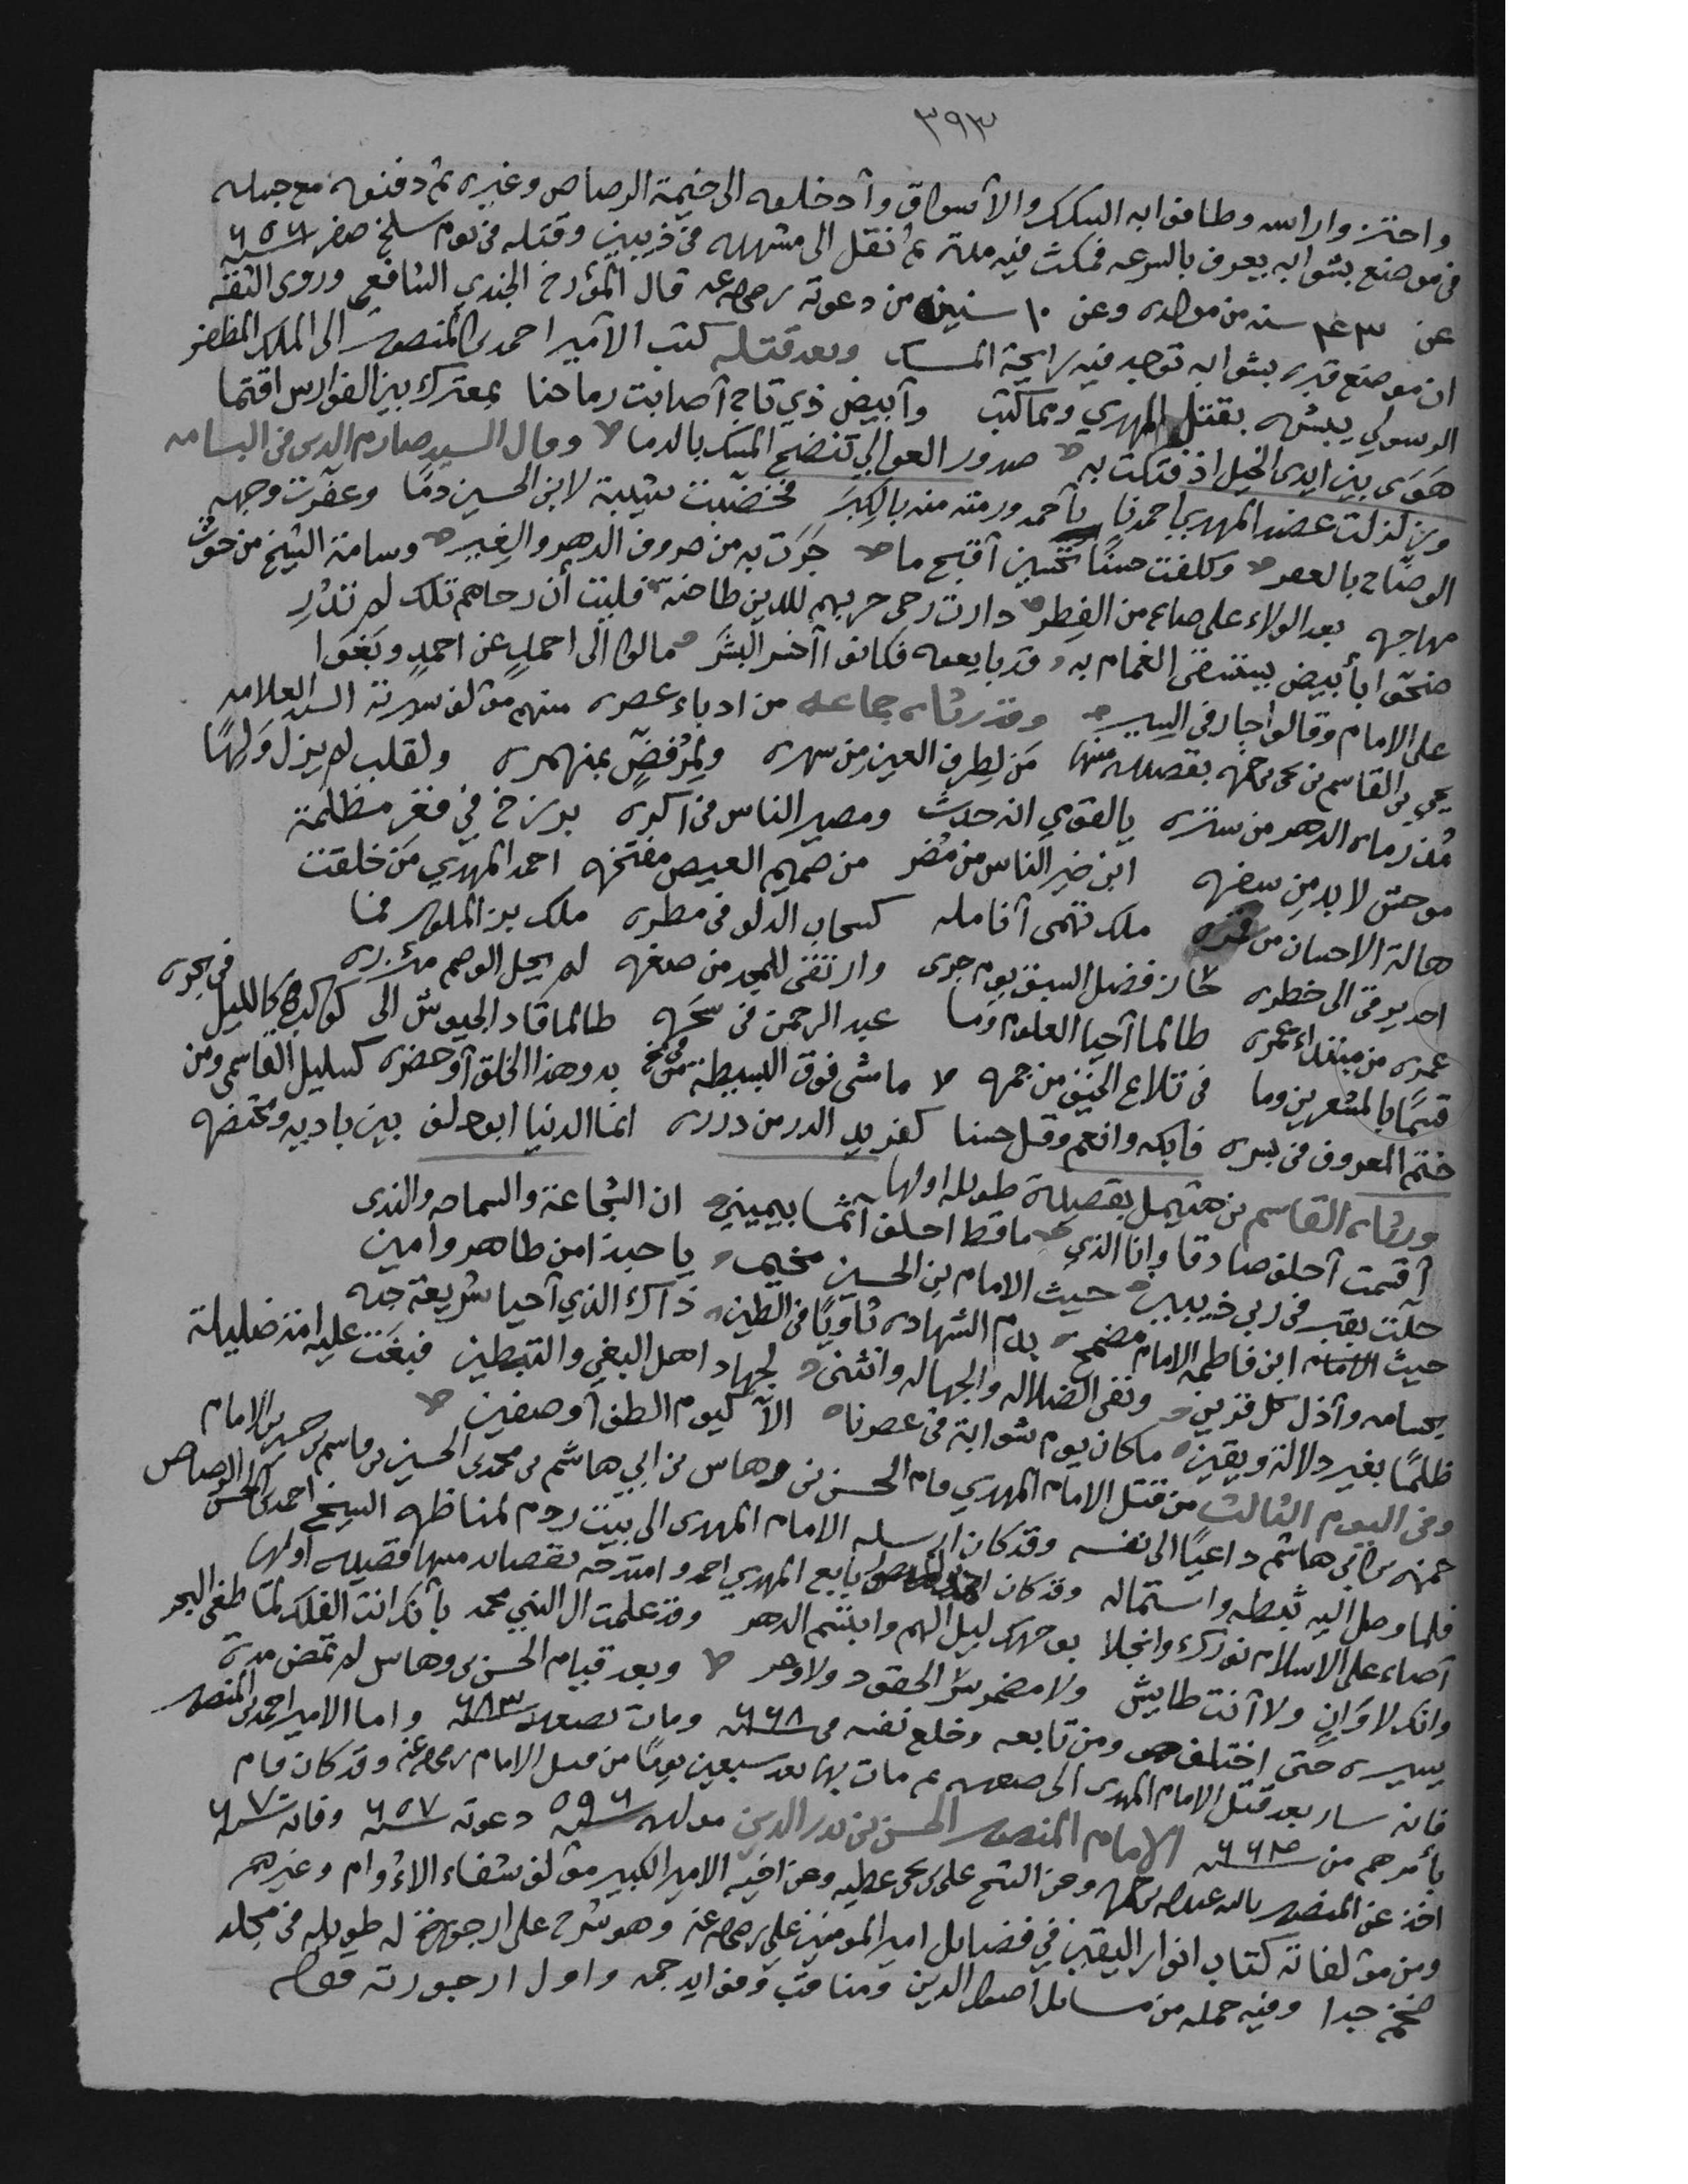 ٣٩٣
واحتزوا راسه وطافوا به السكك والأسواق وأدخلوه الى خيمة الرصاص وغيره ثم دفنوه مع جبله
في موضع بشوابه يعرف بالسرعه فمكث فيه مدة ثم نقل الى مشهده في ذيبين وقتله في يوم سلخ صفر سنة ٦٥٦
عن ٤٣ سنه من مولده وعن ١٠ سنين من دعوته رضي الله عنه قال المؤرخ الجندي الشافعي وروى الثقه
ان موضع قبره بشوابه توجد فيه رايحة المسك وبعد قتله كتب الأمير احمد بن المنصور الى الملك المظفر
الرسولي يبشره بقتل المهدي ومما كتب وأبيض ذي تاج أصابت رماحنا بمعترك بين الفوارس اقتما
هوى بين ايدي الخيل اذ فتكت به صدور العوالي تنضح المسك بالدما وقال السيد صارم الدين في البسامه
وزلزلت عضد المهدي احمدنا بأحمد ورمته منه بالكبر فخضبت شيبة لابن الحسين دمًا وعفرت وجهه
الوضاح بالعفر وكلفت حسنًا تحسين أقبح ما جرت به من صروف الدهر والغير وسامت الشيخ من حوث
مهاجه بعد الولاء على صاع من الفطر دارت رحى حربهم للدين طاحنة فليت أن رحاهم تلك لم تدر
ضحوا بأبيض يستسقى الغمام به وقد بايعوه فكانوا أخسر البشر مالوا الى احمد عن احمد وبغوا
على الامام وقالوا جار في السير وقد رثاه جماعه من ادباء عصره منهم مؤلف سيرته السيد العلامه
يحيى بن القاسم بن يحيى بن حمزه بقصيده منها من لطرف العين من سهره ولمرفض بمنهمره ولقلب لم يزل ولهًا
مذ رماه الدهر من ستره يالقومي انه حدث ومصير الناس في أكره برزخ في قفر مظلمة
موحش لا بد من سفره ابن خير الناس من مضر من صميم العيص مفتخره احمد المهدي من خلقت
هالة الاحسان من قمره ملك تهمى أنامله كسحاب الدلو في مطره ملك بز الملوك فما
احد يرقى الى خطره حاز فضل السبق يوم جرى وارتقى للمجد من صغره لم يحل الوصم مئزره
عمره من مبتداء عمره طالما أحيا العلوم وما عبد الرحمن في سحره طالما قاد الجيوش الى كالليل في بحره
قسمًا بالمشعرين وما في تلاع الخيف من جمره ما مشى فوق البسيطة من بدو هذا الخلق أو حضره كسليل القاسمي ومن
ختم المعروف في يسره فابكه وانعم وقل حسنا كفريد الدر من درره انما الدنيا ابو دلف بين باديه ومحتضره
ورثاه القاسم بن هتيمل بقصيدة طويله اولها
أقسمت أحلف صادقا وانا الذي ما قط احلف آثما بيميني ان الشجاعة والسماحه والندى
حلت بقبر في ربي ذيبين حيث الامام بن الحسين مخيم يا حبذا من طاهر وامين
حيث ابن فاطمه الامام مضمخ بدم الشهاده ثاويًا في الطين ذاك الذي أحيا شريعة جده
بحسامه وأذل كل قرين ونفى الضلاله والجهاله وانثنى لجهاد اهل البغي والتبطين فبغت عليه امة ضليلة
ظلمًا بغير دلالة ويقين ما كان يوم شوابة في عصرنا الا كيوم الطف أو صفين
وفي اليوم الثالث من قتل الامام المهدي قام الحسن بن وهاس بن ابي هاشم بن محمد بن الحسين بن قاسم بن حمزه بن الامام
حمزه بن ابي هاشم داعيًا الى نفسه وقد كان ارسله الامام المهدي الى بيت ردم لمناظره الشيخ احمد بن الحسن الرصاص
فلما وصل اليه ثبطه واستماله وقد كان الرصاص بايع المهدي احمد وامتدحه بقصائد منها قصيده أولها
أضاء على الاسلام نورك وانجلا بوجهك ليل الهم وابتسم الدهر وقد علمت ال النبي محمد بأنك انت الفلك لما طغى البحر
وانك لا وان ولا أنت طايش ولا مضمر سر الحقود ولا وحر وبعد قيام الحسن بن وهاس لم تمض مدة
يسيره حتى اختلف هو ومن تابعه وخلع نفسه في سنة ٦٦٨ ومات بصعده سنة ٦٨٣ واما الامير احمد بن المنصور
فانه سار بعد قتل الامام المهدي الى صعده ثم مات بها بعد سبعين يومًا من قتل الامام رضي الله عنه وقد كان قام
بأمرهم من الامام المنصور الحسن بن بدر الدين مولده سنة ٥٩٦ دعوته سنة ٦٥٧ وفاته سنة ٦٧٠
اخذ عن المنصور بالله عبدالله بن حمزه وعن الشيخ علي بن يحيى عطيه وعن اخيه الامير الكبير مؤلف شفاء الاوام وغيرهم
ومن مؤلفاته كتاب انوار اليقين في فضايل امير المومنين علي رضي الله عنه وهو شرح على ارجوزة له طويله في مجلد
ضخم جدا وفيه جمله من مسائل اصول الدين ومناقب وفوايد جمه واول ارجوزته قوله